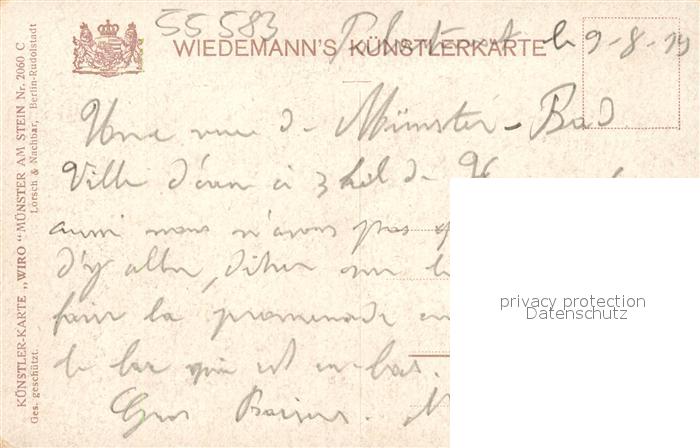 55 583
WIEDEMANN'S KÜNSTLERKARTE
le 9-8-19
Une vue de Münster-Bad
Ville d'eau à 3 kil de
aussi nous n'avons pas
d'y aller,
faire la promenade en
le bac qui est en-bas.
Gros Baisers.
privacy protection
Datenschutz
KÜNSTLER-KARTE „WIRO" MÜNSTER AM STEIN Nr. 2060 C
Ges. geschützt. Lorsch & Nachbar, Berlin-Rudolstadt